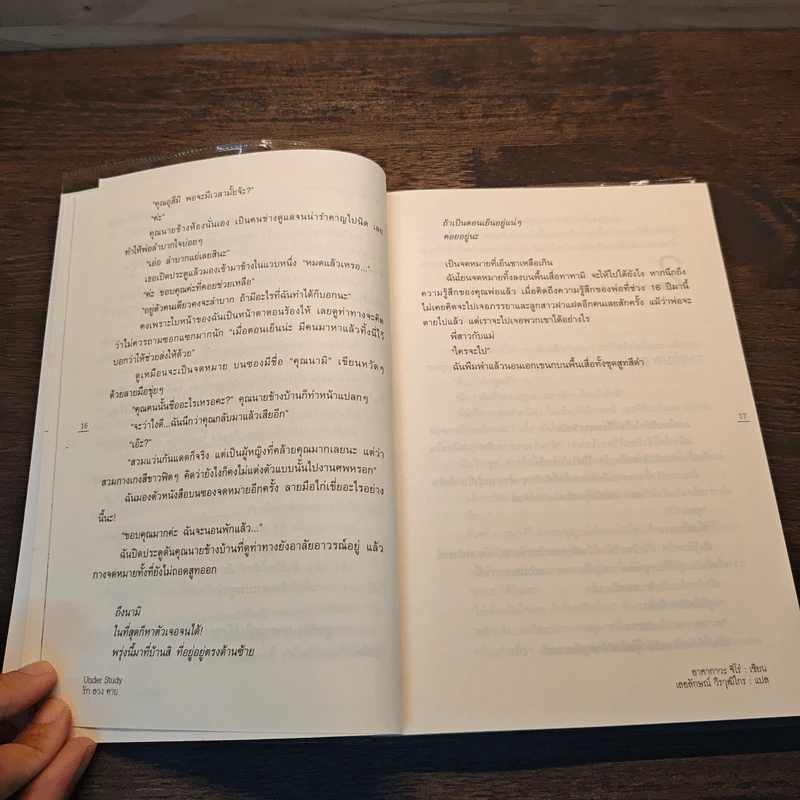 "คุณอุสึมิ พอจะมีเวลามั้ยจ๊ะ?"
"ค่ะ"
คุณนายข้างห้องนั่นเอง เป็นคนช่างดูแลจนน่ารำคาญไปนิด เลย
ทำให้พ่อลำบากใจบ่อยๆ
"เอ่อ ลำบากแย่เลยสินะ"
เธอเปิดประตูแล้วมองเข้ามาข้างในแวบหนึ่ง "หมดแล้วเหรอ..."
"ค่ะ ขอบคุณค่ะที่คอยช่วยเหลือ"
"อยู่ตัวคนเดียวคงจะลำบาก ถ้ามีอะไรที่ฉันทำได้ก็บอกนะ"
คงเพราะใบหน้าของฉันเป็นหน้าตาตอนร้องไห้ เลยดูท่าทางจะคิด
ว่าไม่ควรถามซอกแซกมากนัก "เมื่อตอนเย็นน่ะ มีคนมาหาแล้วทิ้งนี่ไว้
บอกว่าให้ช่วยส่งให้ด้วย"
ดูเหมือนจะเป็นจดหมาย บนซองมีชื่อ "คุณนามิ" เขียนหวัดๆ
ด้วยลายมือขุ่ยๆ
"คุณคนนั้นชื่ออะไรเหรอคะ?" คุณนายข้างบ้านก็ทำหน้าแปลกๆ
"จะว่าไงดี...ฉันนึกว่าคุณกลับมาแล้วเสียอีก"
"เอ๊ะ?"
"สวมแว่นกันแดดก็จริง แต่เป็นผู้หญิงที่คล้ายคุณมากเลยนะ แต่ว่า
สวมกางเกงสีขาวฟิตๆ คิดว่ายังไงก็คงไม่แต่งตัวแบบนั้นไปงานศพหรอก"
ฉันมองตัวหนังสือบนซองจดหมายอีกครั้ง ลายมือไก่เขี่ยอะไรอย่าง
นี้นะ!
"ขอบคุณมากค่ะ ฉันจะนอนพักแล้ว..."
ฉันปิดประตูดันคุณนายข้างบ้านที่ดูท่าทางยังอาลัยอาวรณ์อยู่ แล้ว
กางจดหมายทั้งที่ยังไม่ถอดสูทออก
ถึงนามิ
ในที่สุดก็หาตัวเจอจนได้!
พรุ่งนี้มาที่บ้านสิ ที่อยู่อยู่ตรงด้านซ้าย
16
Under Study
รัก ลวง ตาย
ถ้าเป็นตอนเย็นอยู่แน่ๆ
คอยอยู่นะ
เป็นจดหมายที่เย็นชาเหลือเกิน
ฉันโยนจดหมายทิ้งลงบนพื้นเสื่อทาทามิ จะให้ไปได้ยังไง หากนึกถึง
ความรู้สึกของคุณพ่อแล้ว เมื่อคิดถึงความรู้สึกของพ่อที่ช่วง 16 ปีมานี้
ไม่เคยคิดจะไปเจอภรรยาและลูกสาวฝาแฝดอีกคนเลยสักครั้ง แม้ว่าพ่อจะ
ตายไปแล้ว แต่เราจะไปเจอพวกเขาได้อย่างไร
พี่สาวกับแม่
"ใครจะไป"
ฉันพึมพำแล้วนอนเอกเขนกบนพื้นเสื่อทั้งชุดสูทสีดำ
17
อาคากาวะ จิโร่ : เขียน
เลอลักษณ์ วีรวุฒิไกร : แปล